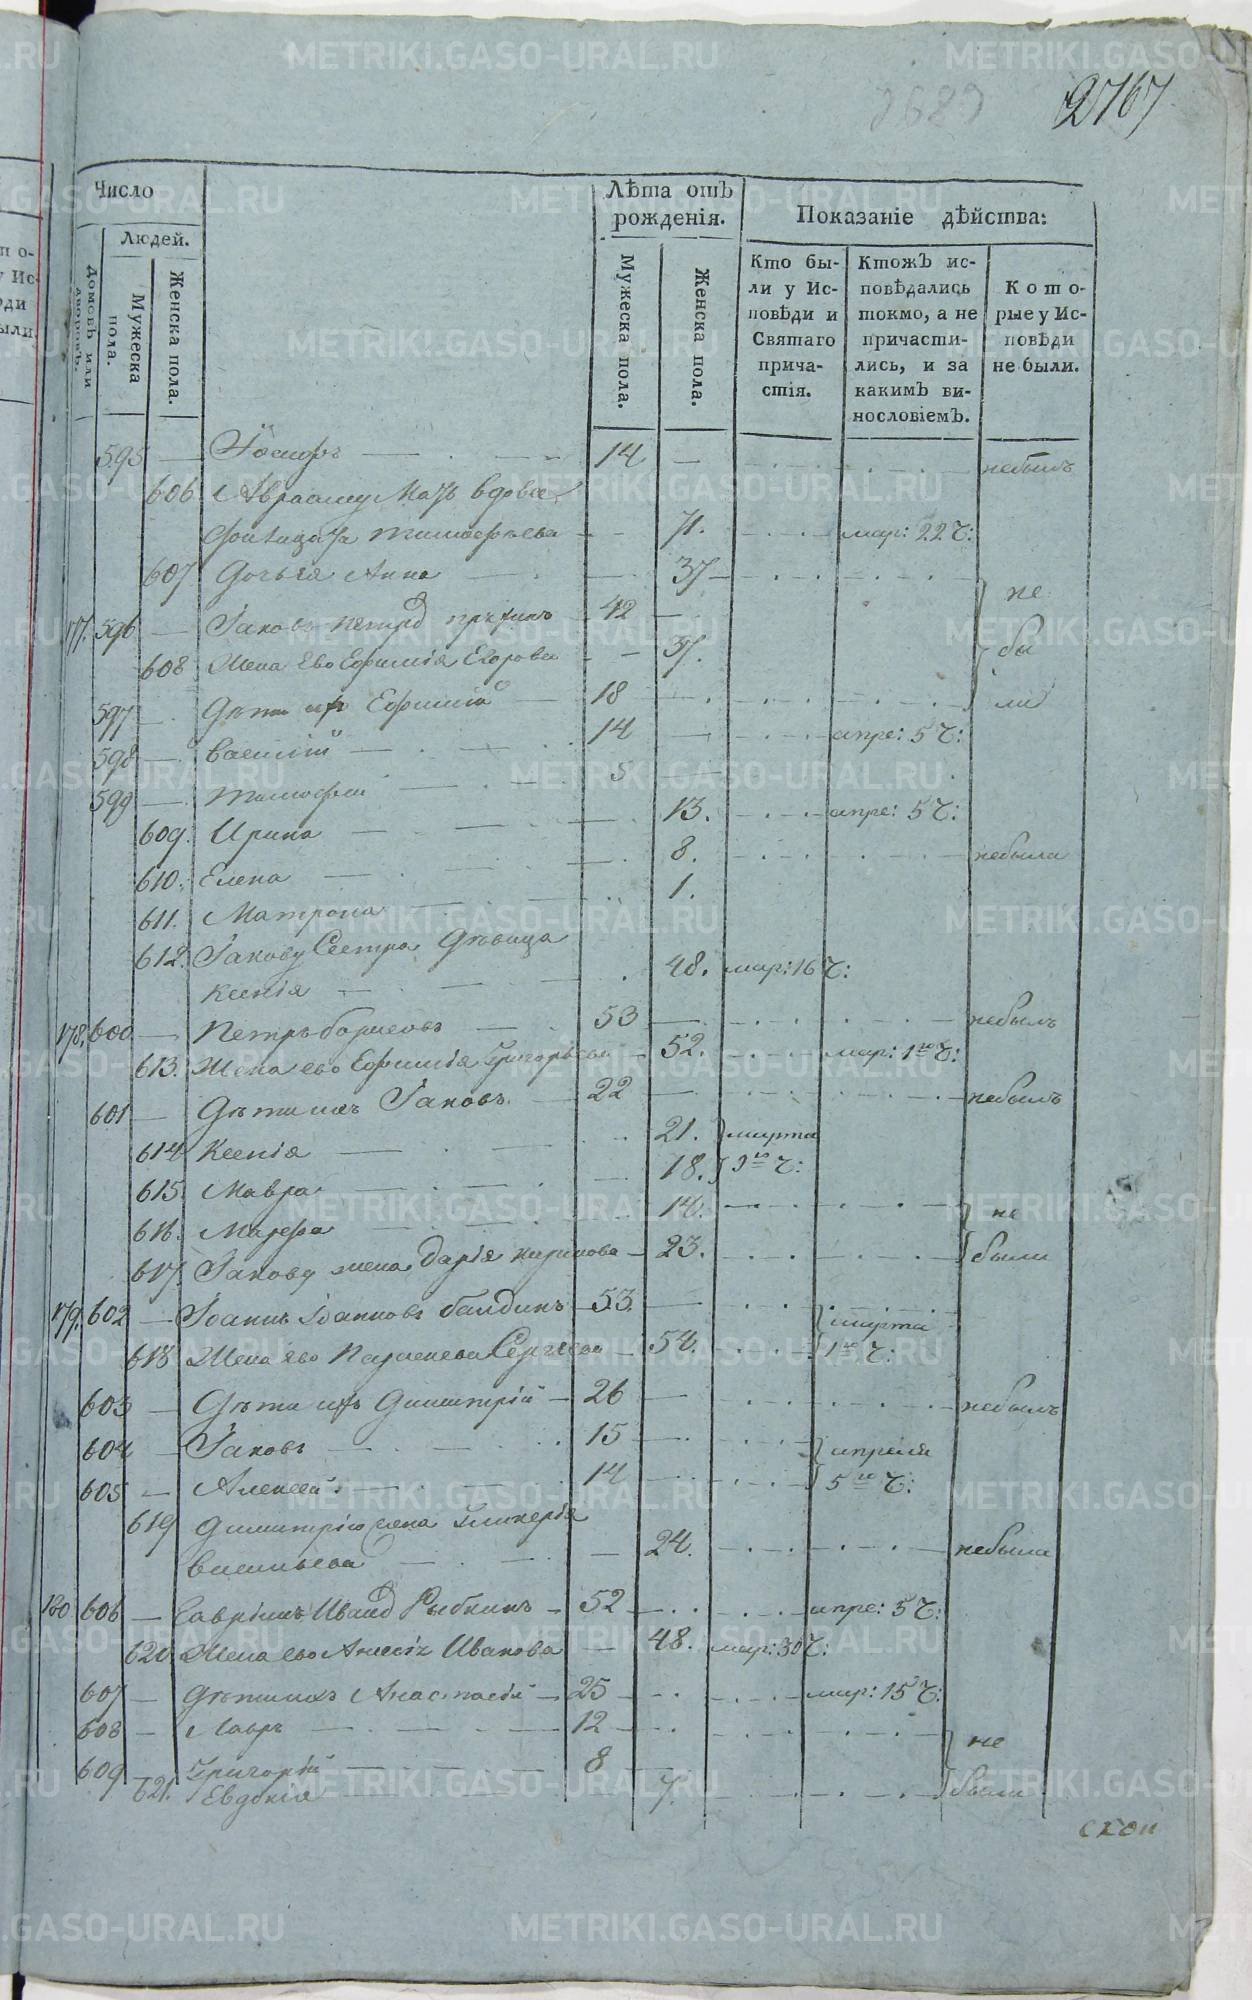 2767
Число
Людей.
Домовъ или дворовъ.
Мужеска пола.
Женска пола.
Лѣта отъ рожденія.
Мужеска пола.
Женска пола.
Показаніе дѣйства:
Кто бы-
ли у Ис-
повѣди и
Святаго
прича-
стія.
Ктожъ ис-
повѣдались
токмо, а не
причасти-
лись, и за
какимъ ви-
нословіемъ.
Кото-
рые у Ис-
повѣди
не были.
595 — Іосифъ — 14 — небылъ
606 Аврааму мать вдова
Тимофѣева 71. мар: 22 ч:
607 Дочь ея Анна 37 не
177. 596 — Іаковъ Петровъ 42 —
608 Жена ево Ефимія Егорова 37. бы
597 — Дѣти ихъ Ефимій 18 ли
598 — Василій 14 — апре: 5 ч:
599 — Тимофей 5
609. Ирина 13. апре: 5 ч:
610. Елена 8. небыла
611. Матрона 1.
612. Іакову сестра дѣвица
Ксенія 48. мар: 16 ч:
178. 600 — Петръ Борисовъ 53 — небылъ
613. Жена ево Ефимія Григорьева 52. мар: 1го ч:
601 — Дѣти ихъ Іаковъ 22 — небылъ
614 Ксенія 21. марта
615. Мавра 18. 9го ч:
616. Марфа 14. не
617. Іакову жена Дарія Кирилова 23. были
179. 602 — Іоаннъ Іоанновъ Балдинъ 53. — марта
618 Жена ево Сергѣева 54. 1го ч:
603 — Дѣти ихъ Димитрій 26 — небылъ
604 — Іаковъ 15 апреля
605 — Алексей 14 5го ч:
619 Димитрію жена Гликерія
Васильева 24. небыла
180 606 — Иванов Рыбкинъ 52 — апре: 5 ч:
620 Жена ево Иванова 48. мар: 30 ч:
607 — Дѣти ихъ Анастасій 25 мар: 15 ч:
608 — Лавръ 12 не
609 Григорій 8
621. Евдокія 7. были
METRIKI.GASO-URAL.RU